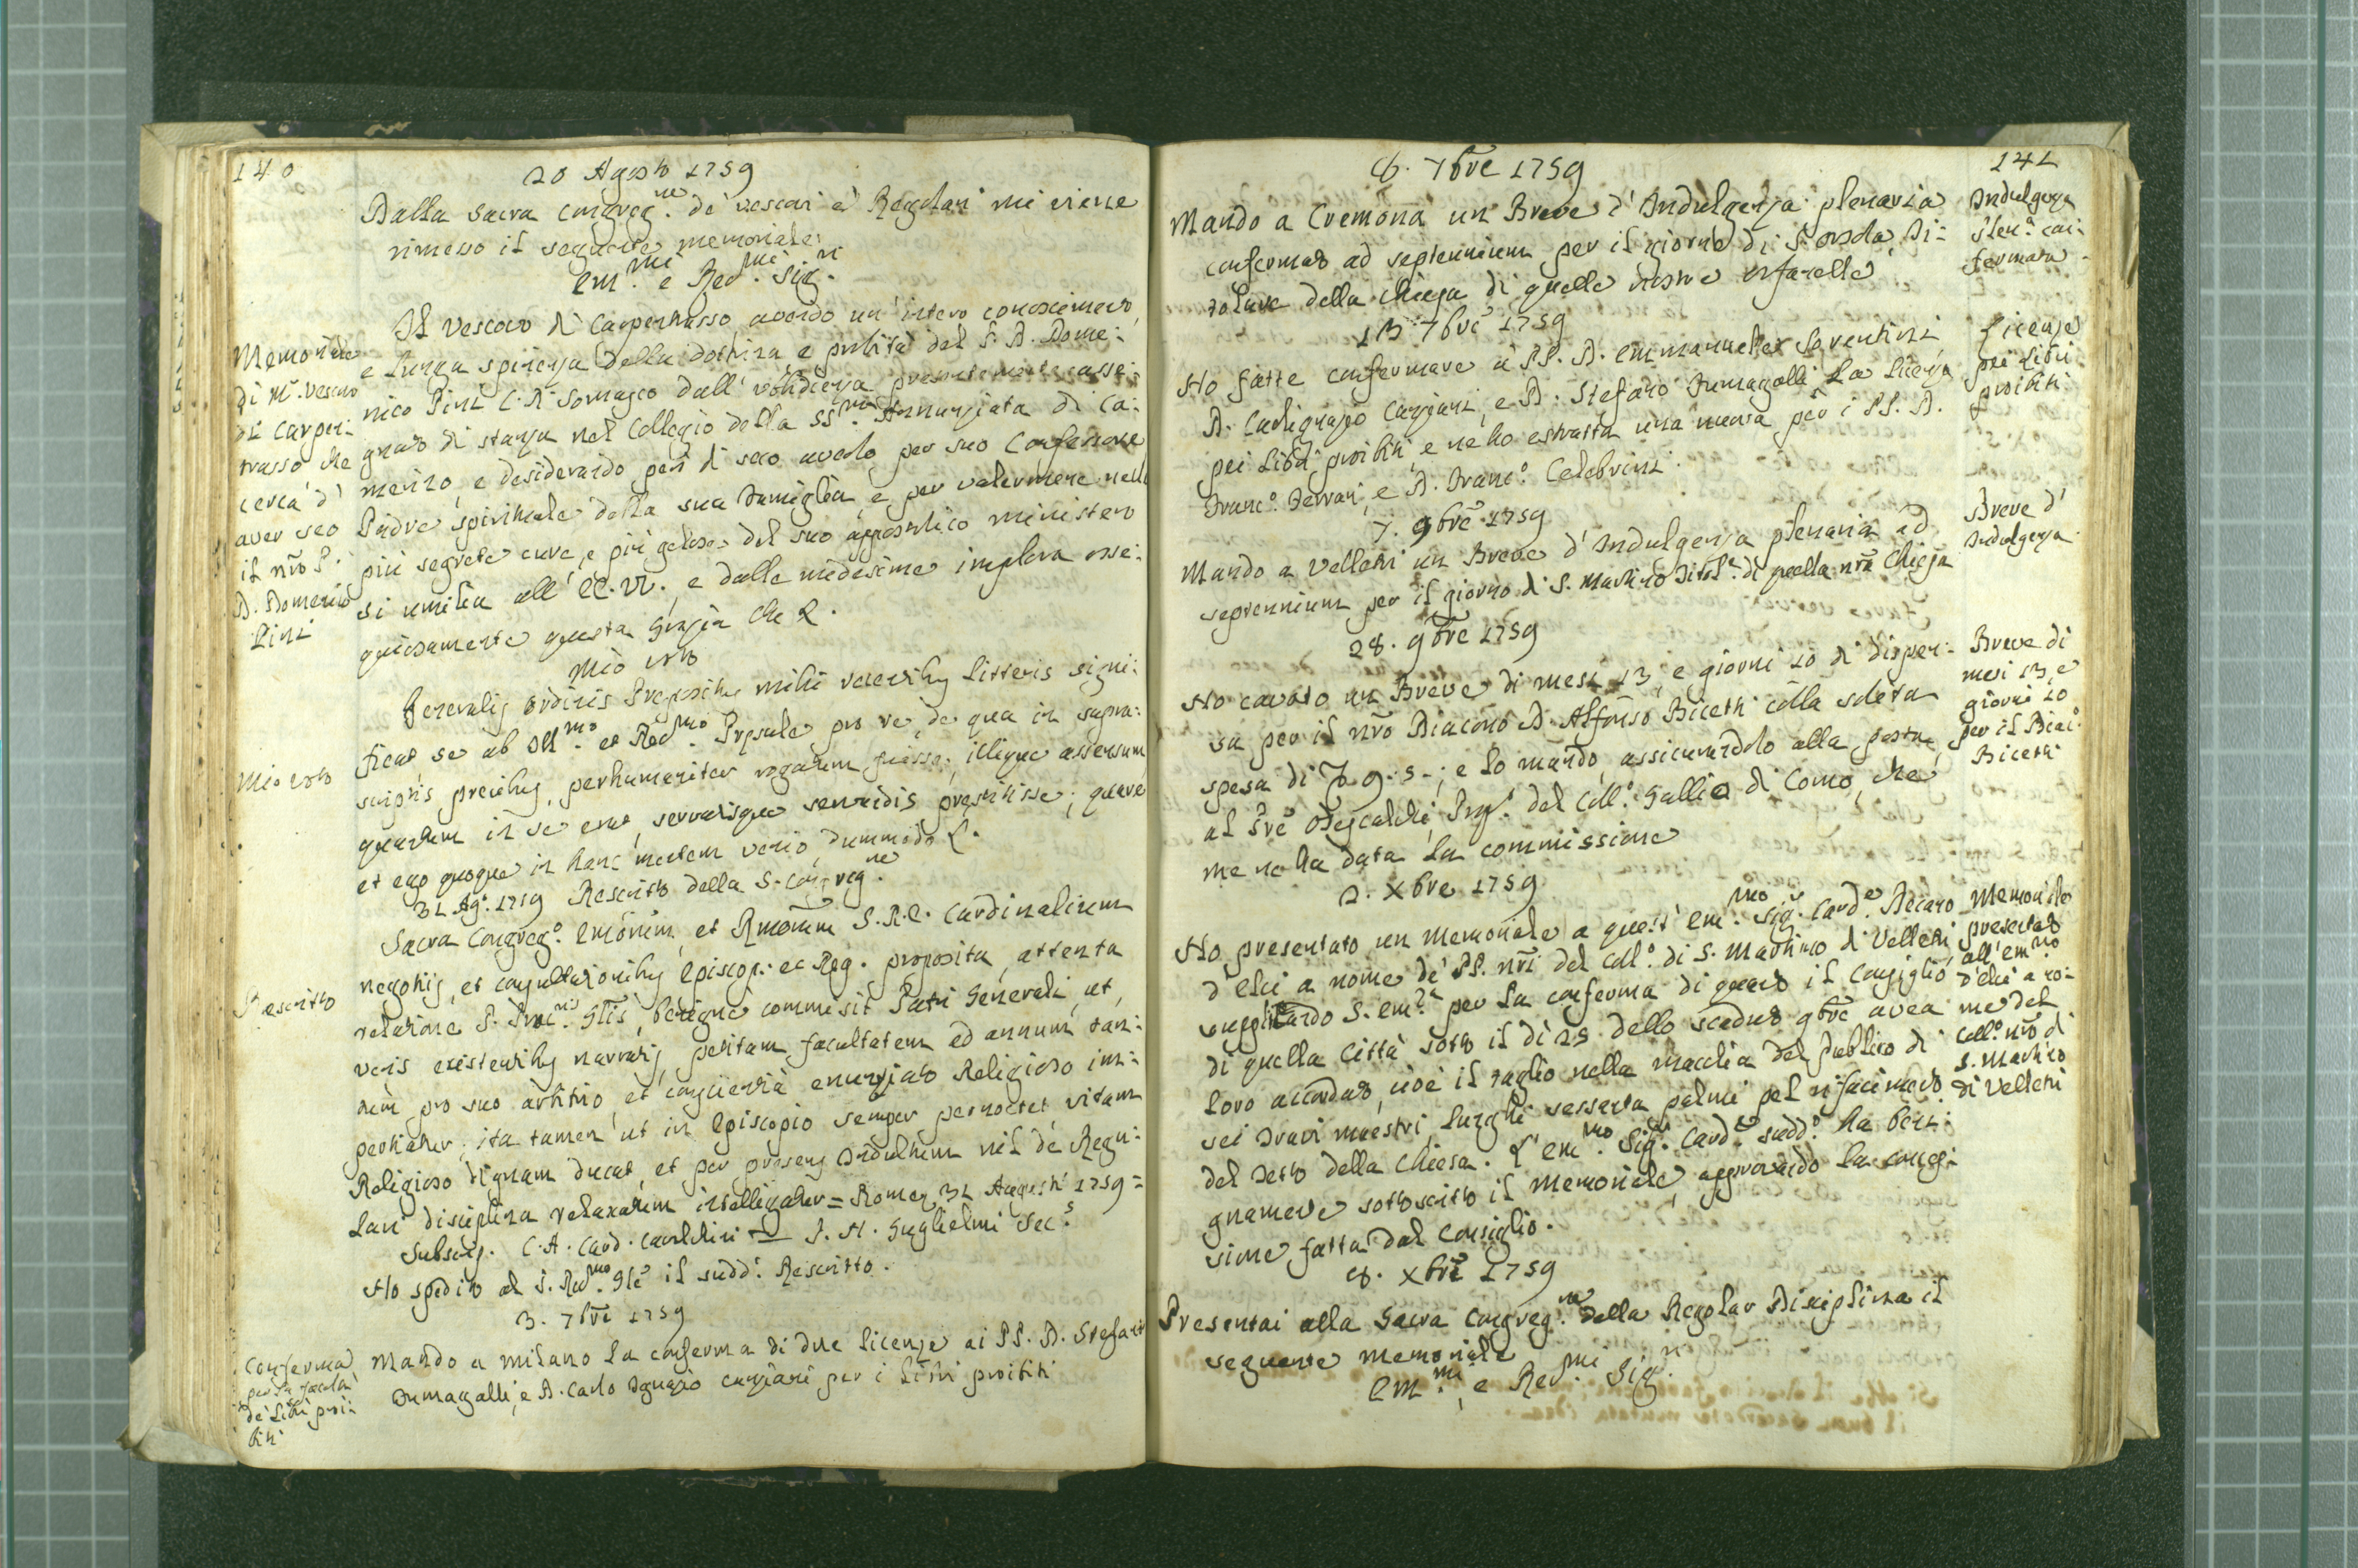 140
20 Agosto 1759
Dalla sacra Congreg.ne de' vescovi e' Regolari mi viene
rimesso il seguente memoriale:
Em.mi e Rev.mi Sig.ri
Il Vescovo di Carpentrasso avendo un' intero conoscimento,
e lunga sperienza della dottrina e probità del P. D. Dome:
nico Pini C. R. Somasco dall' ubbidienza presentemente asse:
gnato di stanza nel Collegio della SS.ma Annunziata di Ca:
merino, e desiderando però di seco averlo per suo Confessore
Padre spirituale della sua Famiglia, e per valermene nelle
più segrete cure, e più gelose del suo appostolico ministero
si umilia all' EE. VV., e dalle medesime implora osse:
quiosamente questa grazia che &.
Memoriale
di M.r Vescovo
di Carpen:
trasso che
cerca d'
aver seco
il nro P.
D. Domenico
Pini
Mio voto
Generalis ordinis Prepositus mihi reverentibus litteris signi:
ficat se ab Ill.mo et Rev.mo Presule pro re, de qua in supra:
scriptis precibus, perhumaniter rogatum fuisse, illique assensum,
quantum in se erat, servatisque servandis prestitisse; quare
et ego quoque in hanc mentem venio, dummodo &.
Mio voto
31 Ag.o 1759 Rescritto della S. Congreg.ne
Sacra Congreg.o Emorum, et Rmorum S. R. E. Cardinalium
negotiis, et consultationibus Episcop. et Reg. proposita, attenta
relatione P. Proc.ris Glis, benigne commisit Patri Generali, ut,
veris existentibus narratis, petitam facultatem ad annum tan:
tum pro suo arbitrio, et conscientia enunciato Religioso im:
pertiatur; ita tamen ut in Episcopio semper pernoctet vitam
Religioso dignam ducat, et per presens Indultum nil de Regu:
lari disciplina relaxatum intelligatur = Romae 31 Augusti 1759 =
Subscrip. C. A. Card. Cavalchini = J. M. Guglielmi Sec.s
Rescritto
Ho spedito al P. Rev.mo Gle il sudd.o Rescritto.
3. 7bre 1759
Mando a Milano la conferma di due licenze ai PP. D. Stefano
Fumagalli, e D. Carlo Ignazio Canziani per i Libri proibiti
Conferma
per la facoltà
de' Libri proi:
biti
141
8. 7bre 1759
Mando a Cremona un Breve d' Indulgenza plenaria
confermato ad septennium per il giorno di S. Orsola Ti:
tolare della Chiesa di quelle nostre orfanelle
Indulgenza
plen.a con:
fermata
13 7bre 1759
Ho fatte confermare a' PP. D. Emmanuele Sorentini
D. Carlignazio Canziani, e D. Stefano Fumagalli La licenza
pei Libri proibiti, e ne ho estratta una nuova per i PP. D.
Franc.o Ferrari, e D. Franc.o Celebrini.
Licenze
pei Libri
proibiti
7. 9bre 1759
Mando a Velletri un Breve d' Indulgenza plenaria ad
septennium per il giorno di S. Martino Titol.e di quella nra Chiesa
Breve d'
Indulgenza
28. 9bre 1759
Ho cavato un Breve di mesi 13, e giorni 20 di dispen:
sa per il nro Diacono D. Alfonso Bicetti colla solita
spesa di 9. 5 -; e lo mando, assicurandolo alla posta,
al P. re Odescalchi Prep.o del Coll.o Gallio di Como, che
me ne ha data la commissione
Breve di
mesi 13, e
giorni 20
per il Diac.o
Bicetti
2. Xbre 1759
Ho presentato un memoriale a quest' Em.mo Sig.r Card.e Decano
d' Elci a nome de' PP. nri del Coll.o di S. Martino di Velletri,
supplicando S. Em.za per la conferma di quanto il Consiglio
di quella Città sotto il dì 25 dello scaduto 9bre avea
loro accordato, cioè il taglio nella macchia del Publico di
sei travi maestri lunghi sessanta palmi pel rifacimento
del tetto della Chiesa. L' Em.mo Sig.r Card.e sudd.o ha beni:
gnamente sottoscritto il memoriale, approvando la conces:
sione fatta dal Consiglio.
Memoriale
presentato
all' Em.mo
d' Elci a no:
me del
Coll.o nro di
S. Martino
di Velletri
8. Xbre 1759
Presentai alla Sacra Congreg.ne della Regolar Disciplina il
seguente memoriale
Em.mi, e Rev.mi Sig.ri